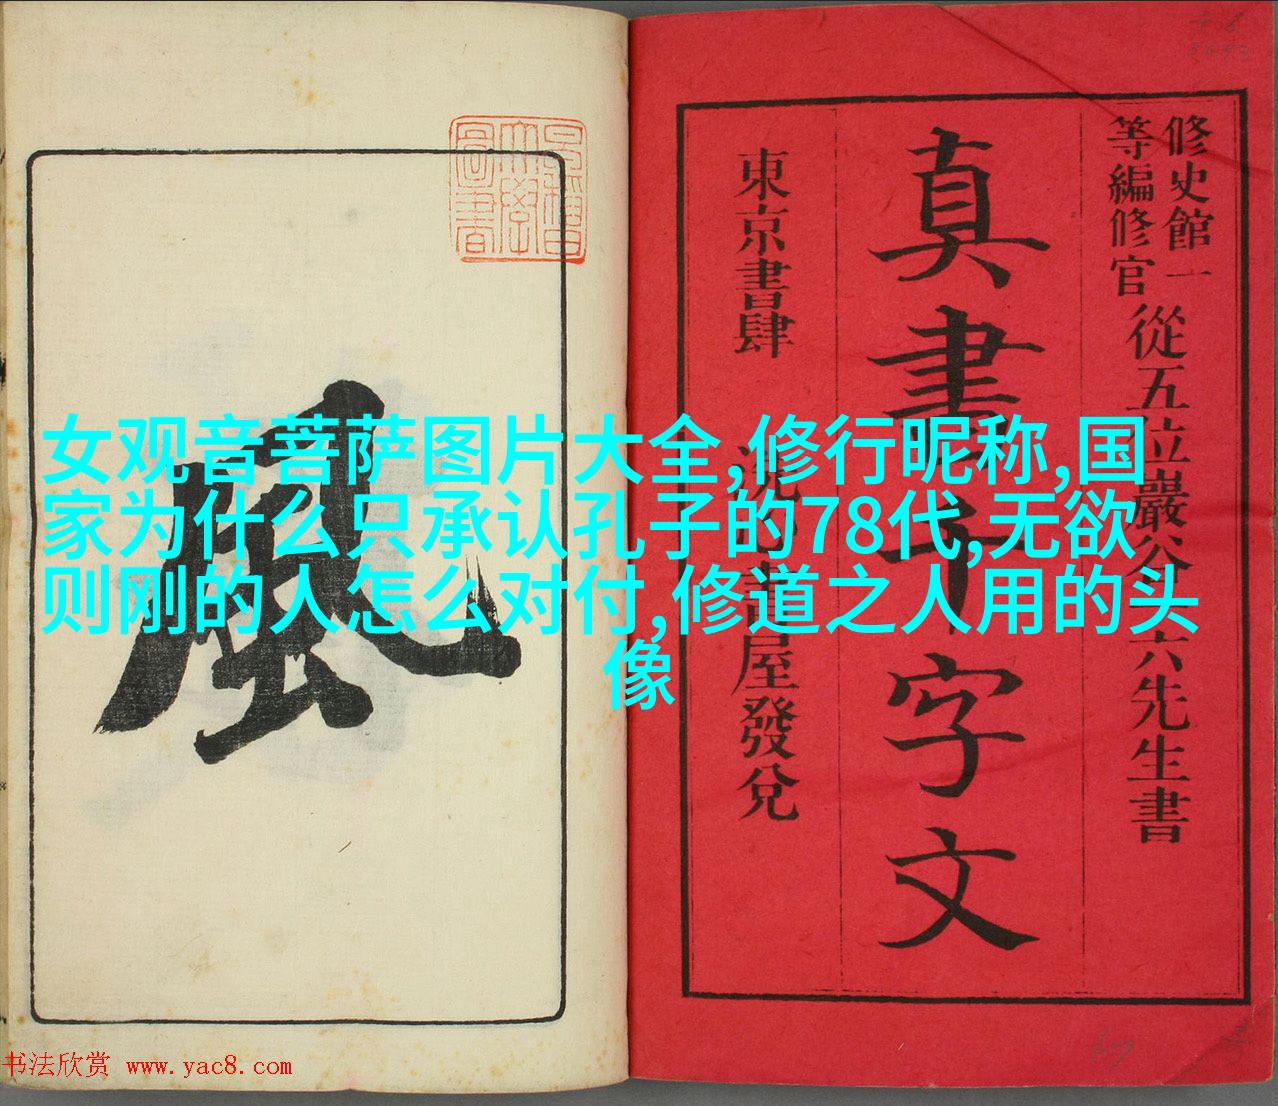 修史館一
等編修官
從五位巖谷一六先生書
真書千字文
東京書肆
屋發兌
風
女观音菩萨图片大全,修行昵称,国
家为什么只承认孔子的78代,无欲
则刚的人怎么对付,修道之人用的头
像
书法欣赏 www.yac8.com